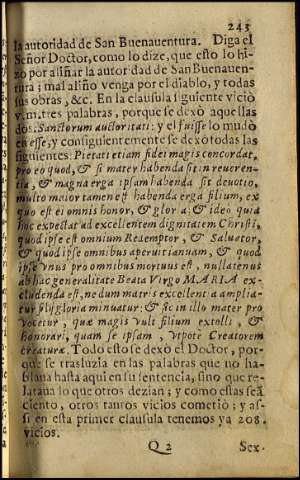 243
la autoridad de San Buenaventura. Diga el
Señor Doctor, como lo dize, que esto lo hi-
zo por aliñar la autoridad de San Buenaven-
tura; mal aliño venga por el diablo, y todas
sus obras, &c. En la clausula siguiente viciò
v. m. tres palabras, porque se dexò aquellas
dos: Sanctorum auctoritati: y el fuisse lo mudò
en esse, y configuientemente se dexò todas las
siguientes: Pietati etiam fidei magis concordat,
pro eo quod, & si mater habenda sit in reveren-
tia, & magna erga ipsam habenda sit devotio,
multo maior tamen est habenda erga filium, ex
quo est ei omnis honor, & gloria: & ideo, quia
hoc expectat ad excellentem dignitatem Christi,
quod ipse est omnium Redemptor, & Salvator,
& quod ipse omnibus aperuit ianuam, & quod
ipse vnus pro omnibus mortuus est, nullatenus
ab hac generalitate Beata Virgo MARIA ex-
cludenda est, ne dum matris excellentia amplia-
tur filij gloria minuatur: & sic in illo mater pro
vocetur, quæ magis vult filium extolli, &
honorari, quam se ipsam, vtpote Creatorem
creaturæ. Todo esto se dexò el Doctor, por-
que se trasluzia en las palabras que no ha-
blava hasta aqui en su sentencia, sino que re-
lataua lo que otros dezian; y como essas sean
ciento, otros tantos vicios cometiò; y as-
si en esta primer clausula tenemos ya 208.
vicios.
Q 2 Sex-